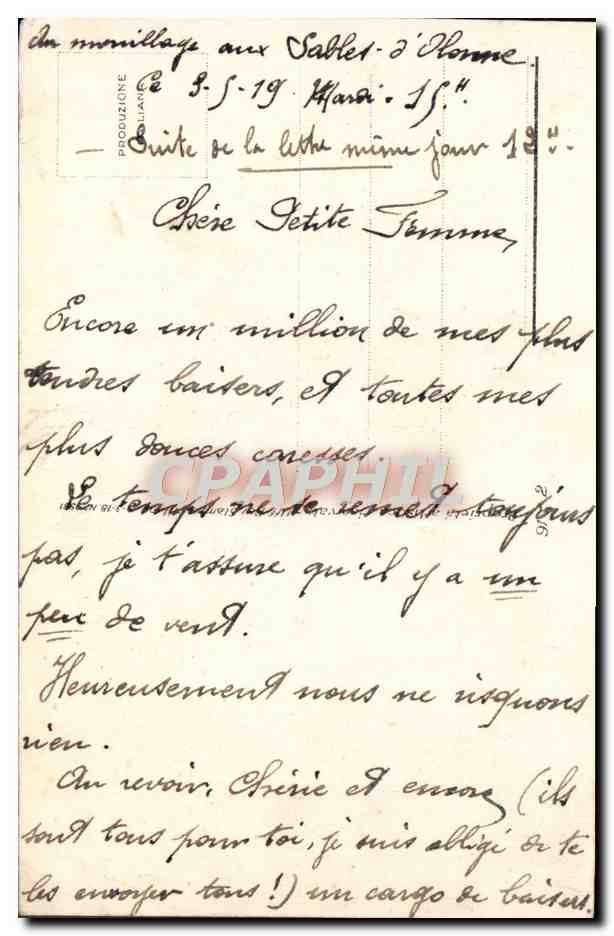 Au mouillage aux Sables-d'Olonne
Ce 3-5-19 Mardi - 15.H
PRODUZIONE
— Suite de la lettre même jour 18H.
Chère Petite Femme,
Encore un million de mes plus
tendres baisers, et toutes mes
plus douces caresses.
CPARHIL
Le temps ne se remet toujours
pas, je t'assure qu'il y a un
peu de vent.
Heureusement nous ne risquons
rien.
Au revoir, Chérie et encore (ils
sont tous pour toi, je suis obligé de te
les envoyer tous !) un cargo de baisers.